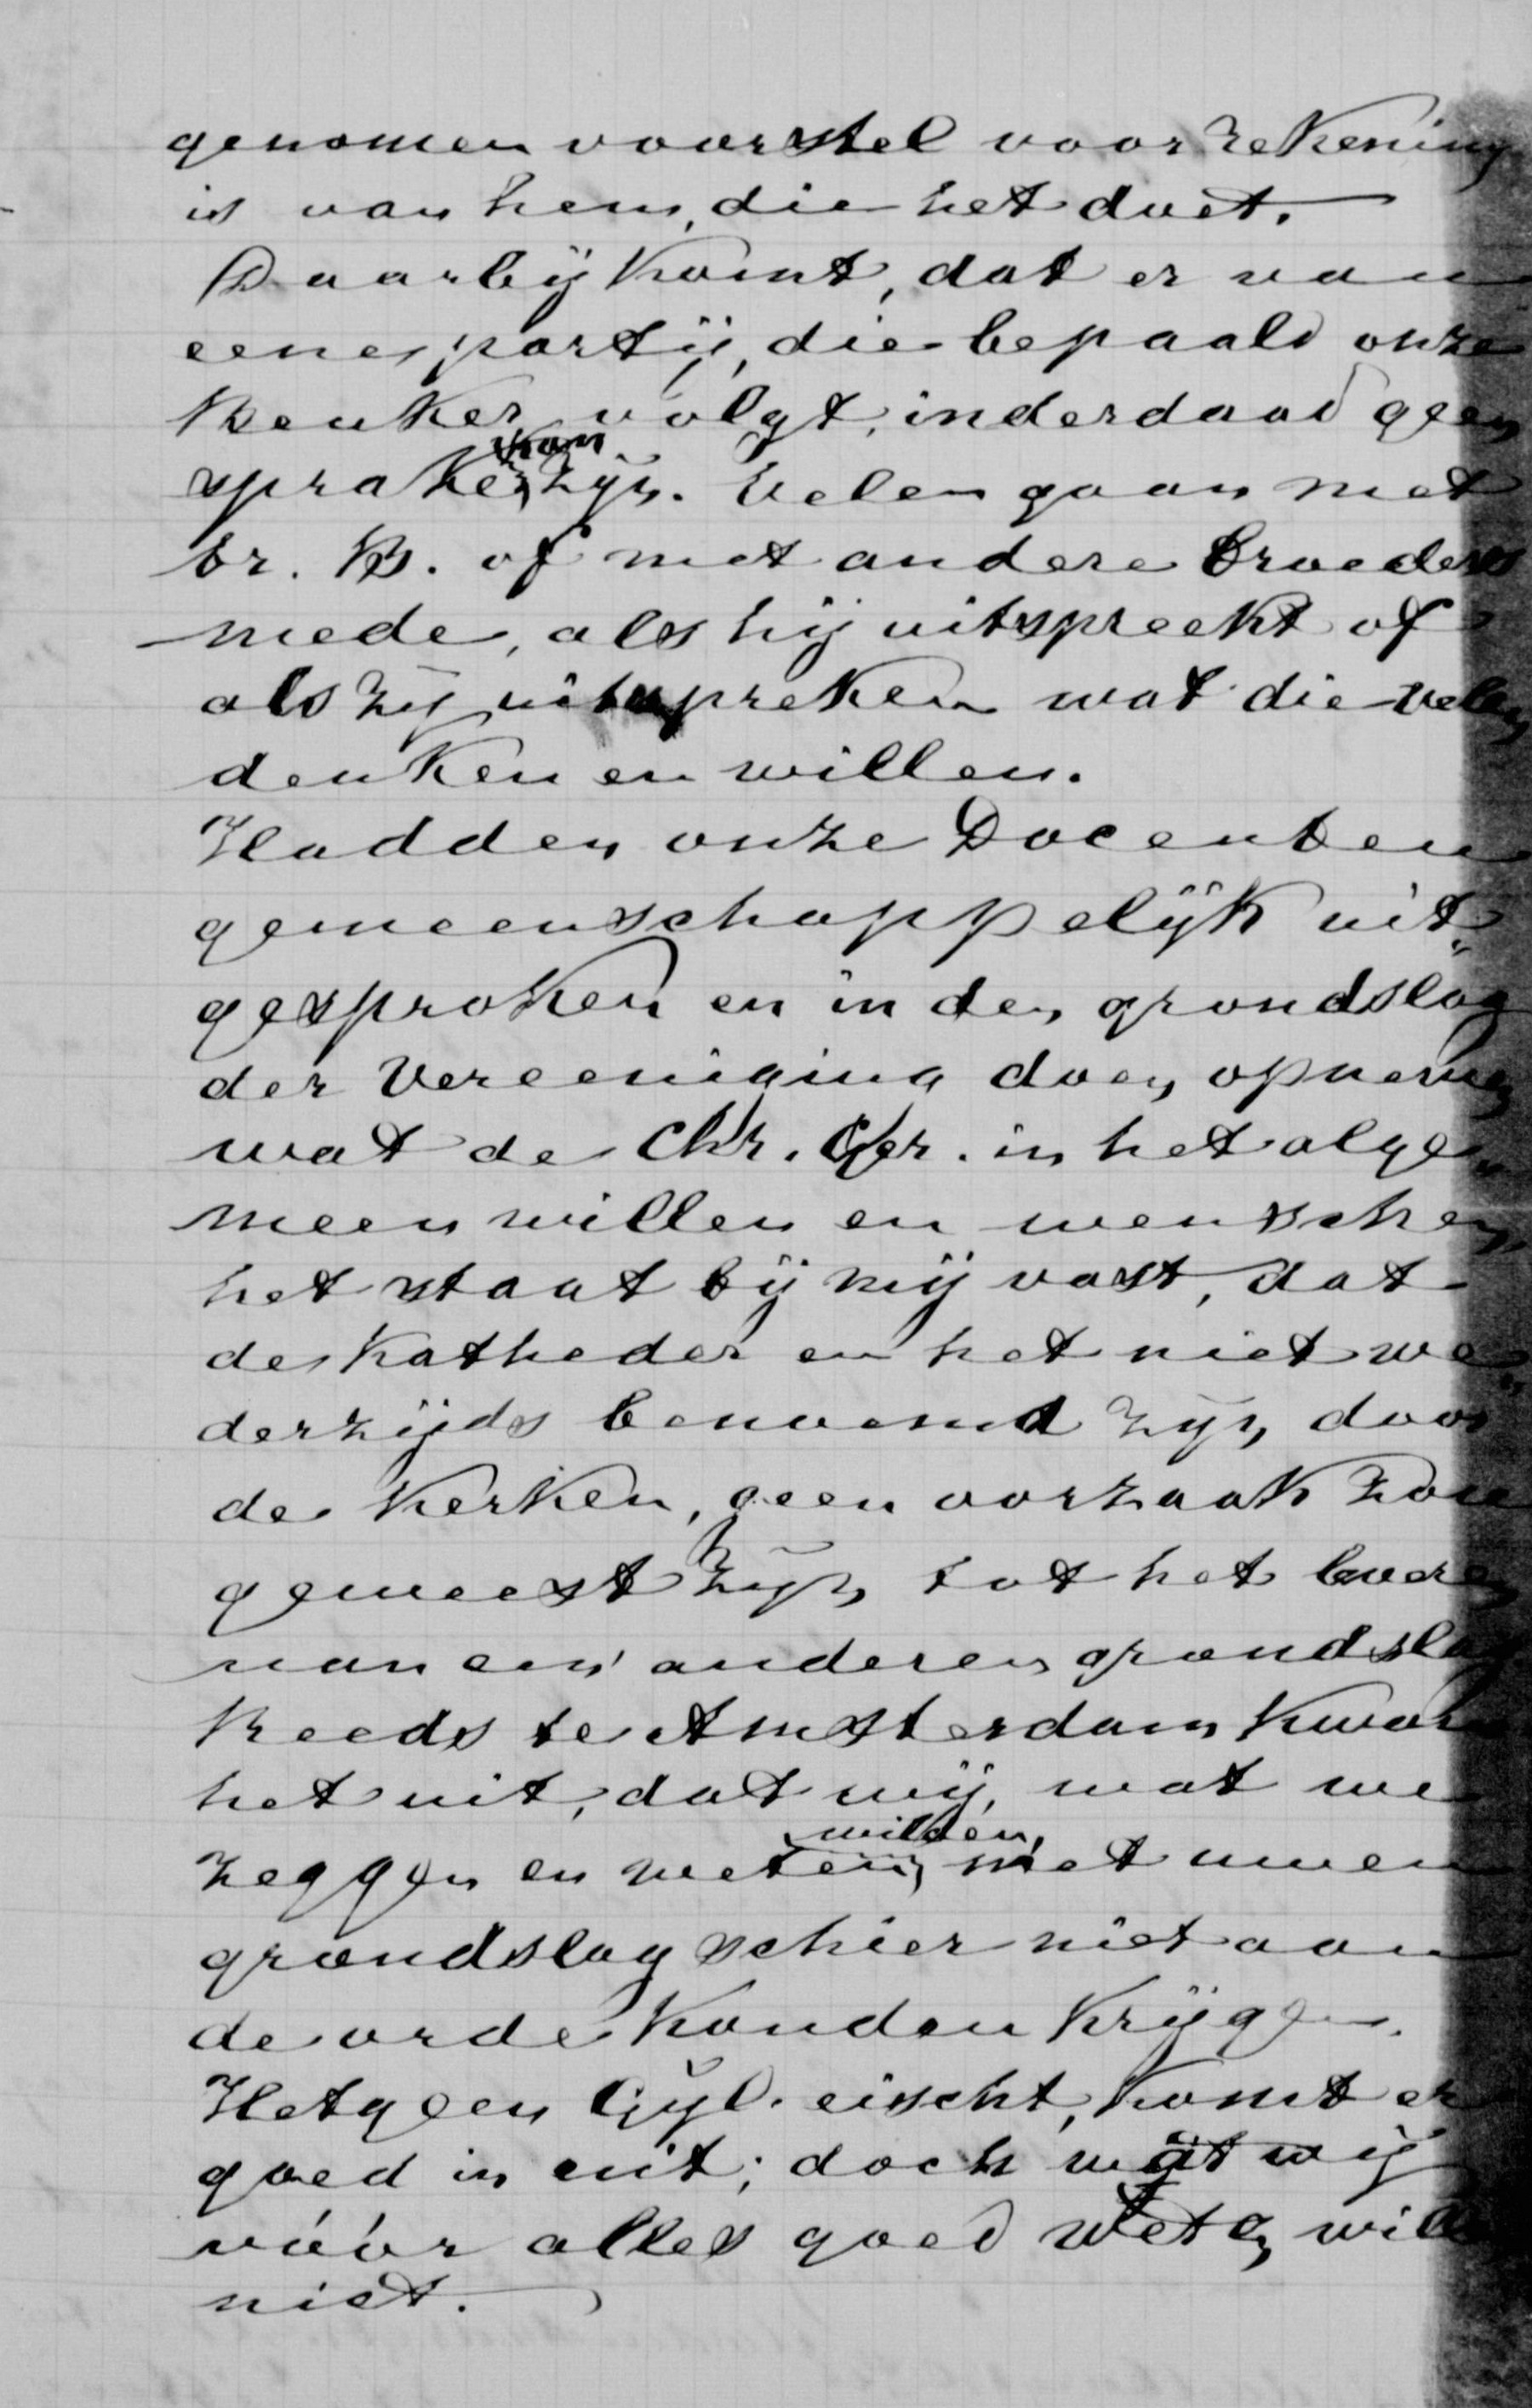 genomen voorstel voor rekening
is van hem, die het doet.
Daarbij komt, dat er van
eene partij, die bepaald onze
Beuker volgt, inderdaad geen
sprake kan zijn. Velen gaan met
br. B. of met andere broeders
mede, als hij uitspreekt of
als zij uitspreken wat die velen
denken en willen.
Hadden onze Docenten
gemeenschappelijk uit„
gesproken en in den grondslag
der Vereeniging doen opnemen
wat de Chr. Ger. in het alge„
meen willen en wenschen,
het staat bij mij vast, dat
de katheder en het niet we„
derzijds benoemd zijn door
de Kerken, geen oorzaak zou
geweest zijn tot het
van een' anderen grondslag
Reeds te Amsterdam kwam
het uit, dat wij, wat we
zeggen en weten wilden, met uwen
grondslag schier niet aan
de orde konden krijgen.
Hetgeen Gijl. eischt, komt er
goed in uit; doch wat wij
vóór alles goed weten willen
niet.